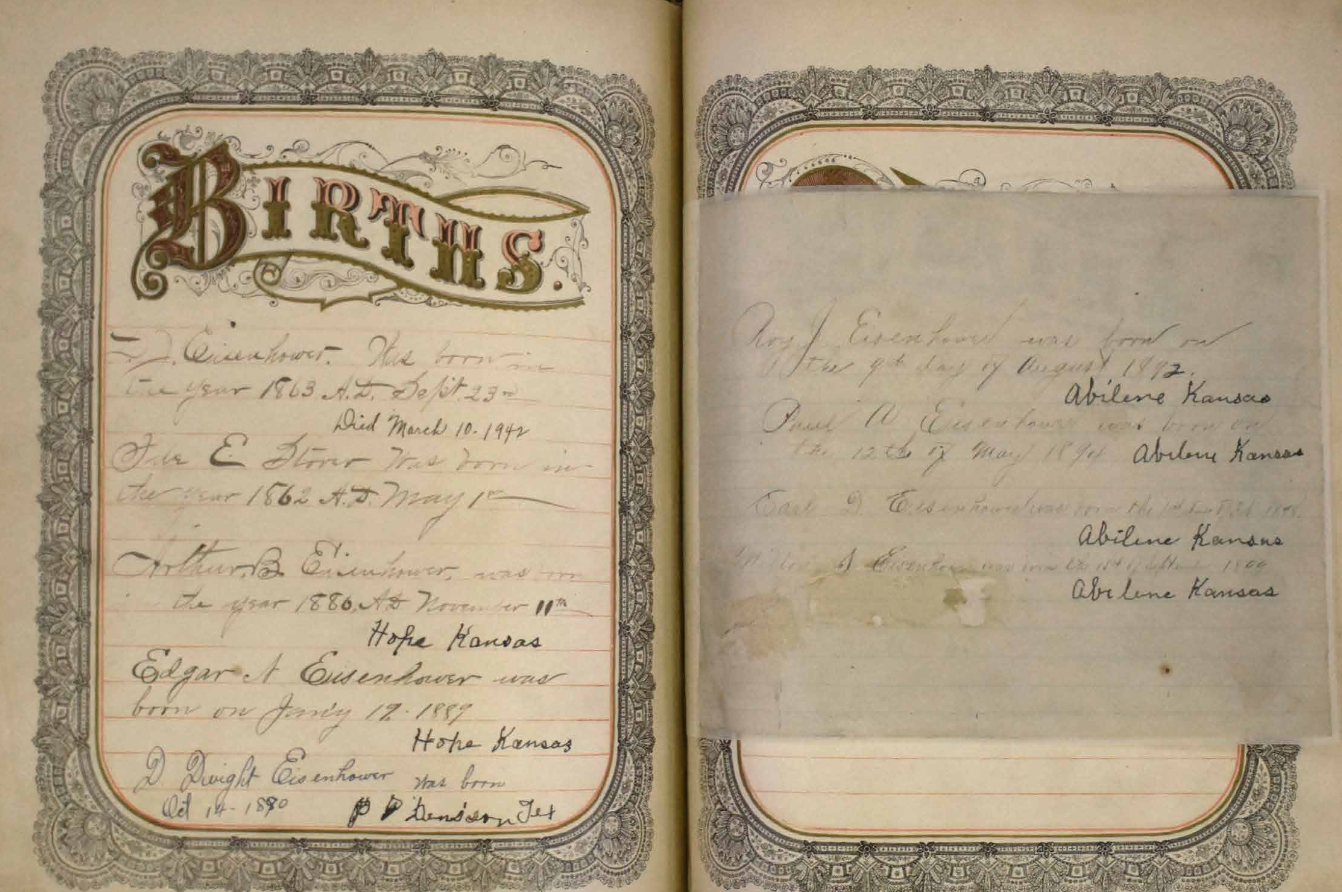 BIRTHS.
D. J. Eisenhower. Was born in
the year 1863 A.D. Sept 23rd
Died March 10-1942
E Stover Was born in
the year 1862 A.D. May 1st
Arthur. B Eisenhower. was born
the year 1886 AD November 11th
Hope Kansas
Edgar N Eisenhower was
born on Jan'y 19-1889
Hope Kansas
D Dwight Eisenhower was born
Oct 14-1890 Denison Tex
Roy J Eisenhower was born on
the 9th day of August 1892.
Abilene Kansas
Paul A Eisenhower was born on
the 12th of May 1894 Abilene Kansas
Earl D Eisenhower was born the 1898.
Abilene Kansas
Eisenhower was born the of September 1899
Abilene Kansas